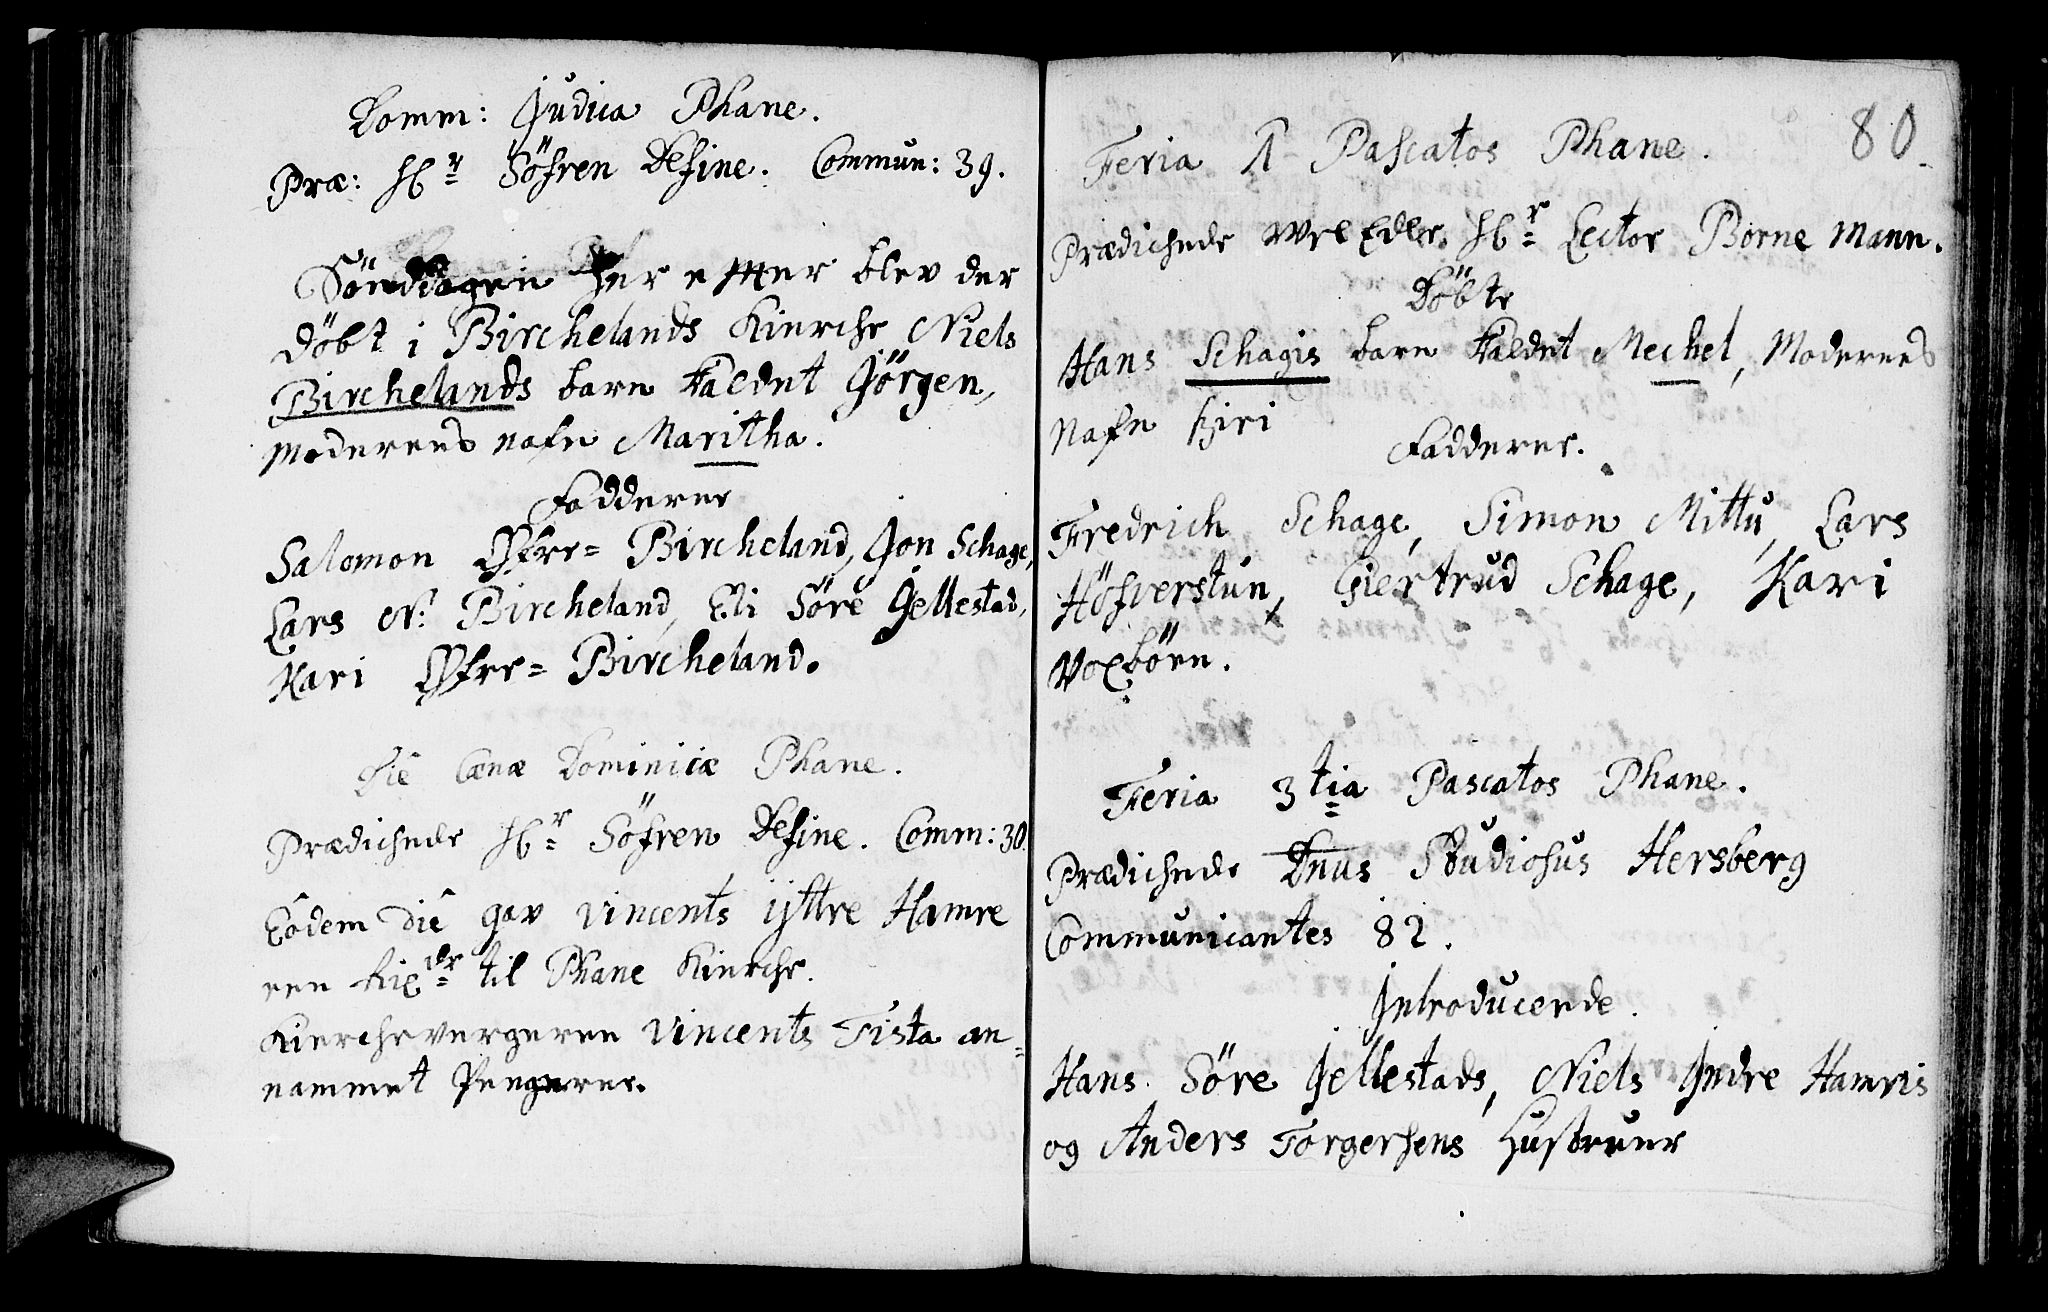 Domm: Judica Phane.
Præ: Hr Söfren Define. Commun: 39.
Söndagen her efter blev der
döbt i Birchelands Kirche Niels
Birchelands barn kaldet Jörgen,
Moderens nafn Maritha.
Faddere
Salomon Øfre= Bircheland, Jon Schage,
Lars N: Bircheland, Eli Söre Jellestad,
Kari Øfre= Bircheland.
Die Cænæ Dominicæ Phane.
Prædichede Hr Söfren Define. Comm: 30.
Eodem die gav Vincents ÿttre Hamre
een rixdr til Phane Kirche.
Kirchevergeren Vincents Tista an=
nammet Pengene.
80.
Feria 1 Pascatos Phane.
Prædichede Velædle Hr Lector Bornemann.
Döbte
Hans Schagis barn kaldet Mechel, Moderens
Nafn Siri
Fadderne.
Fredrich Schage, Simon Mittu, Lars
Höfverstun, Giertrud Schage, Kari
Voxbörn.
Feria 3tia Pascatos Phane.
Prædichede Dnus Studiosus Hersberg
Communicantes 82.
Introducerede.
Hans Söre Jellestads, Niels Indre Hamris
og Anders Torgersens Hustruer